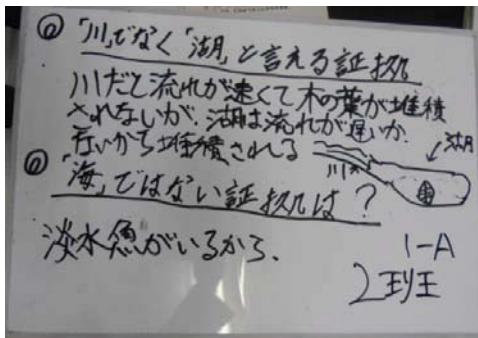 ① 「川」でなく「湖」と言える証拠
川だと流れが速くて木の葉が堆積
されないが、湖は流れが遅いか、
無いから堆積される
湖
川
① 「海」ではない証拠は?
淡水魚がいるから、
1-A
2班